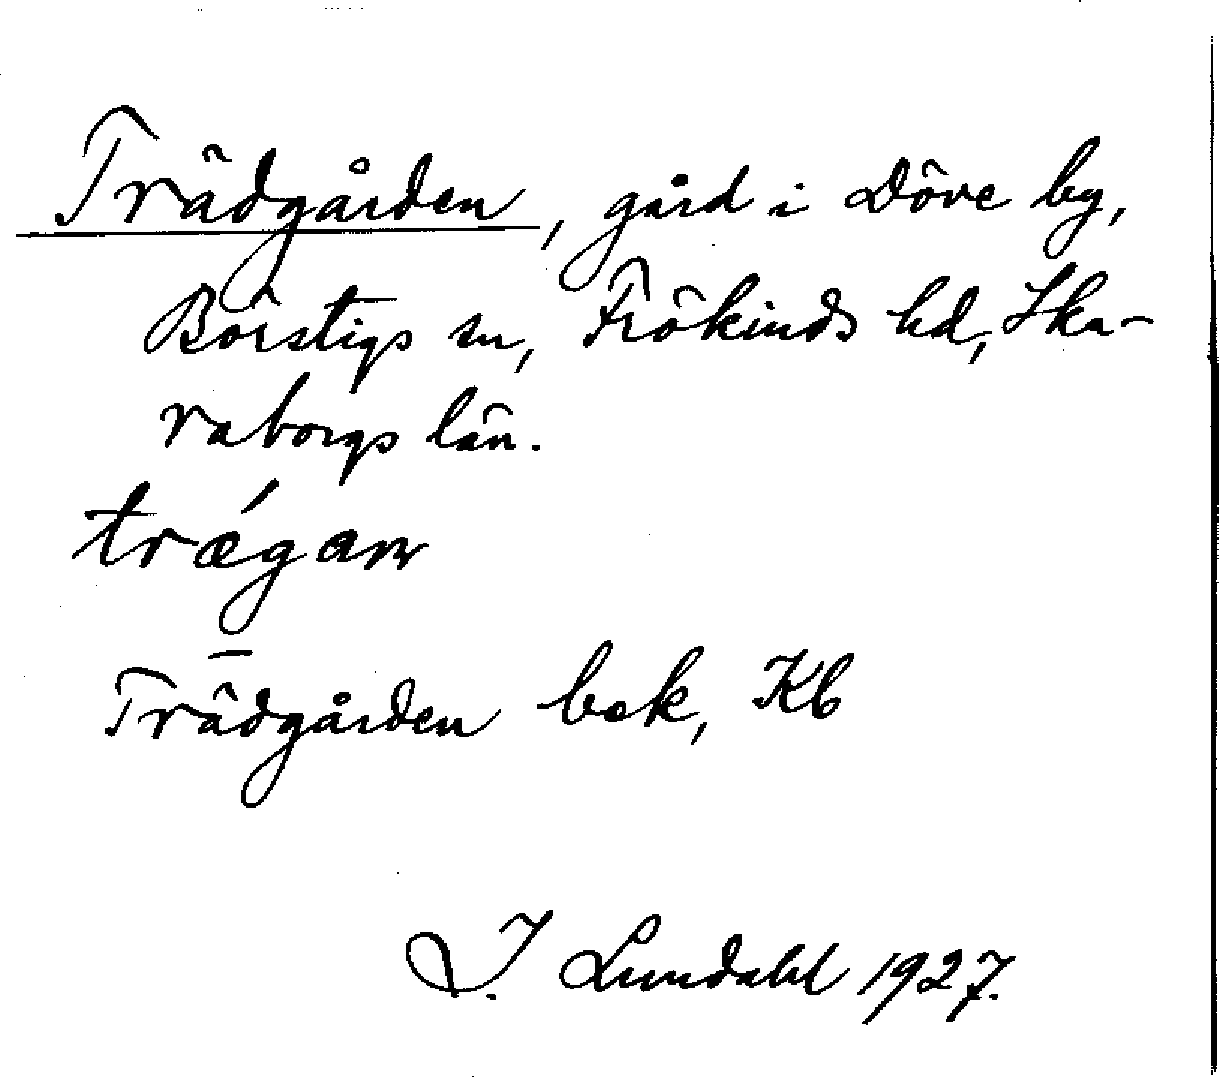 Trädgården, gård i Döve by,
Börstigs sn, Frökinds hd, Ska-
raborgs län.
trǽgan
Trädgården bek, Kb
I. Lundahl 1927.